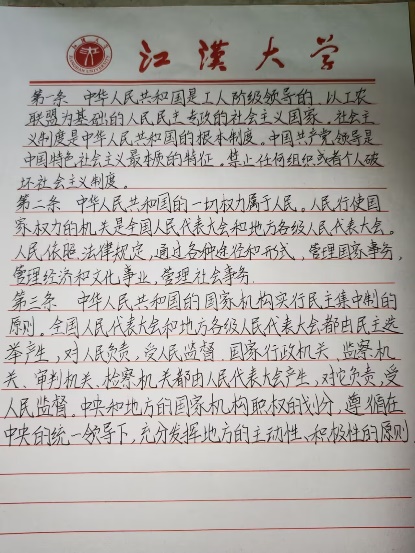 江漢大学
第一条 中华人民共和国是工人阶级领导的,以工农
联盟为基础的人民民主专政的社会主义国家。社会主
义制度是中华人民共和国的根本制度。中国共产党领导是
中国特色社会主义最本质的特征。禁止任何组织或者个人破
坏社会主义制度。
第二条 中华人民共和国的一切权力属于人民。人民行使国
家权力的机关是全国人民代表大会和地方各级人民代表大会。
人民依照法律规定,通过各种途径和形式,管理国家事务,
管理经济和文化事业,管理社会事务.
第三条 中华人民共和国的国家机构实行民主集中制的
原则。全国人民代表大会和地方各级人民代表大会都由民主选
举产生,对人民负责,受人民监督。国家行政机关、监察机
关、审判机关、检察机关都由人民代表大会产生,对它负责,受
人民监督。中央和地方的国家机构职权的划分,遵循在
中央的统一领导下,充分发挥地方的主动性、积极性的原则